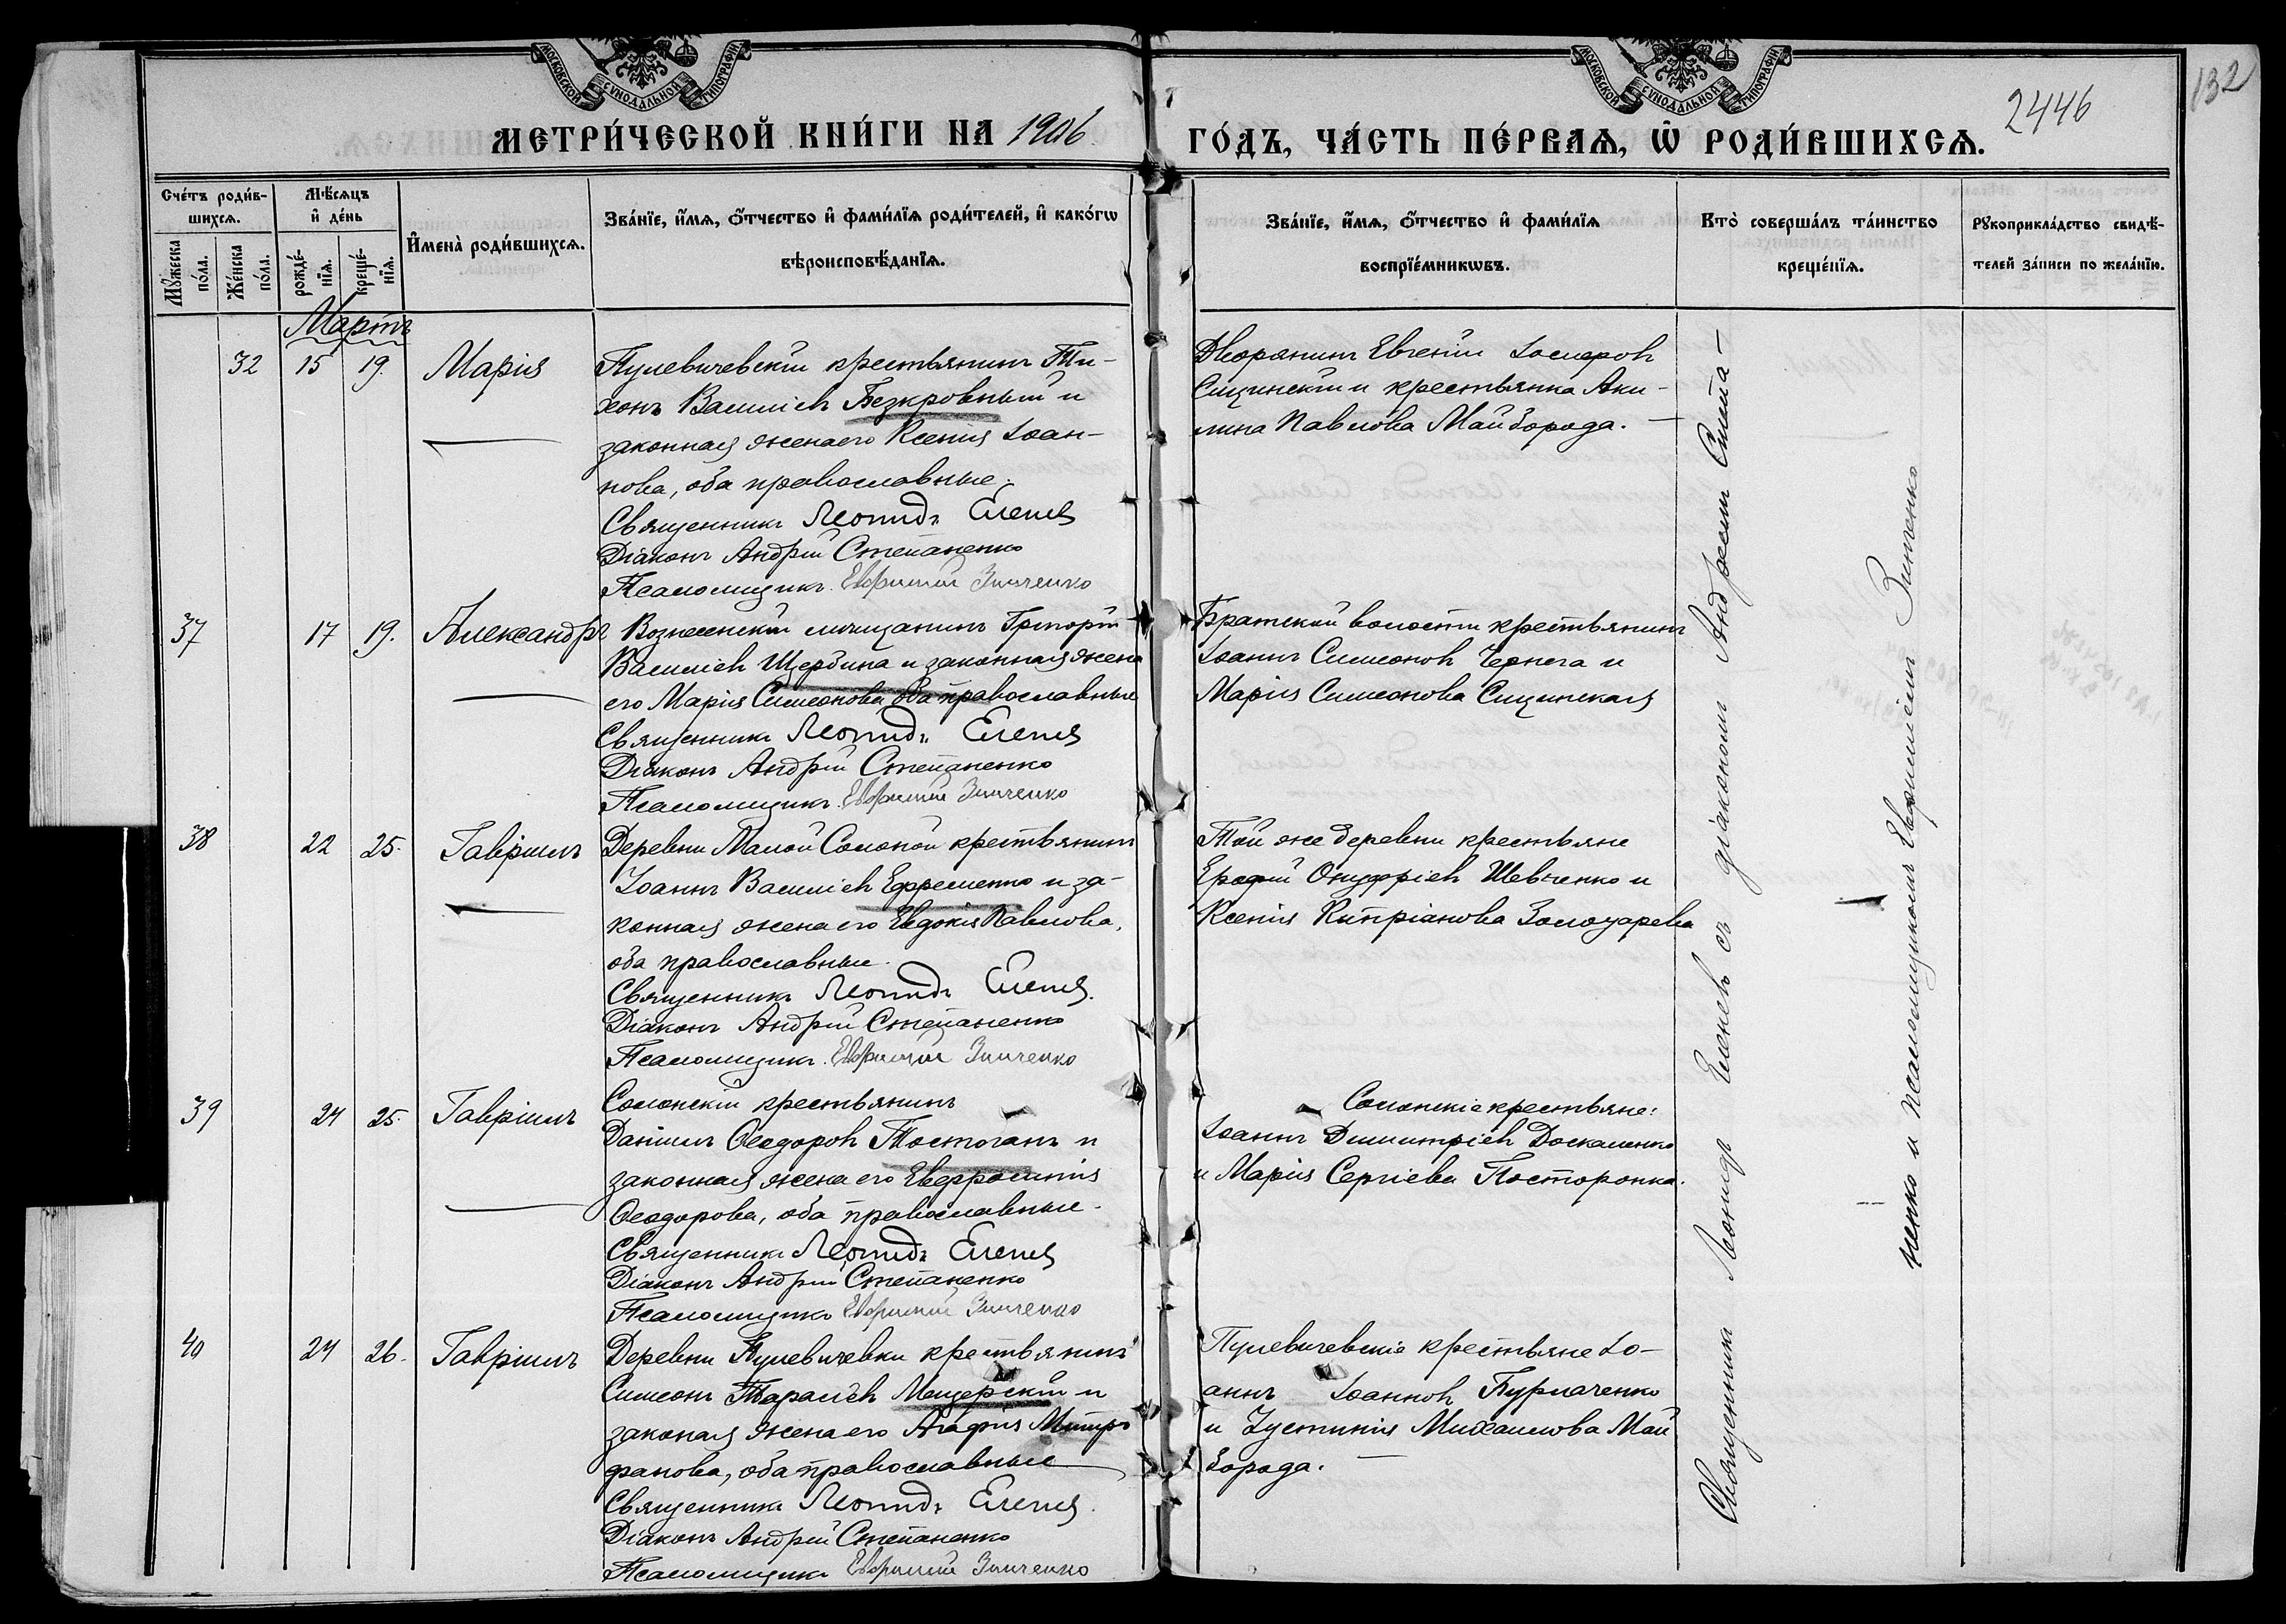 МОСКОВСКОЙ СѴНОДАЛЬНОЙ ТИПОГРАФІИ
МОСКОВСКОЙ СѴНОДАЛЬНОЙ ТИПОГРАФІИ
132
2446
МЕТРИ́ЧЕСКОЙ КНИ́ГИ НА 1906 ГО́ДЪ, ЧА́СТЬ ПЕ́РВАѦ, Ѡ РОДИ́ВШИХСѦ.
Сче́тъ роди́в-
шихсѧ.
Мꙋ́жеска по́ла.
Же́нска по́ла.
Мѣ́сяцъ
и҆ де́нь
рожде́-
нїѧ.
креще́-
нїѧ.
И҆мена̀ роди́вшихсѧ.
Зва́нїе, и҆́мѧ, ѻ҆́тчество и҆ фами́лїѧ роди́телей, и҆ како́гѡ
вѣроисповѣ́данїѧ.
Зва́нїе, и҆́мѧ, ѻ҆́тчество и҆ фами́лїѧ
воспрїе́мникѡвъ.
Кто̀ соверша́лъ та́инство
креще́нїѧ.
Рꙋкоприкла́дство свидѣ́-
телей за́писи по жела́нїю.
Мартъ
32 15 19. Марія
Пулевичевскій крестьянинъ Ти-
хонъ Василіевъ Безкровный и
законная жена его Ксенія Іоан-
нова, оба православные.
Священникъ Леонидъ Еленевъ
Діаконъ Андрій Степаненко
Псаломщикъ Евфимій Зинченко
Дворянинъ Евгеній Іосифовъ
Сицинскій и крестьянка Аки-
лина Павлова Майборода. —
37 17 19. Александръ
Вознесенскій мѣщанинъ Григорій
Василіевъ Щербина и законная жена
его Марія Симеонова, оба православные
Священникъ Леонидъ Еленевъ
Діаконъ Андрій Степаненко
Псаломщикъ Евфимій Зинченко
Братской волости крестьянинъ
Іоаннъ Симеоновъ Чернега и
Марія Симеонова Сицинская
38 22 25. Гавріилъ
Деревни Малой Солоной крестьянинъ
Іоаннъ Василіевъ Ефременко и за-
конная жена его Евдокія Павлова,
оба православные.
Священникъ Леонидъ Еленевъ.
Діаконъ Андрій Степаненко
Псаломщикъ Евфимій Зинченко
Той же деревни крестьяне
Ерофій Онуфріевъ Шевченко и
Ксенія Кипріанова Золотарева
39 24 25. Гавріилъ
Солонскій крестьянинъ
Даніилъ Ѳеодоровъ Тостоганъ и
законная жена его Евфросинія
Ѳеодорова, оба православные.
Священникъ Леонидъ Еленевъ
Діаконъ Андрій Степаненко
Псаломщикъ Евфимій Зинченко
Солонскіе крестьяне:
Іоаннъ Димитріевъ Доскаленко
и Марія Сергіева Посторонка.
40 24 26. Гавріилъ
Деревни Пулевичевки крестьянинъ
Симеонъ Тарасіевъ Мещерскій и
законая жена его Агафія Митро
фанова, оба православные
Священникъ Леонидъ Еленевъ.
Діаконъ Андрій Степаненко
Псаломщикъ Евфимій Зинченко
Пулевичевскіе крестьяне Іо-
аннъ Іоанновъ Бурлаченко
и Іустинія Михаилова Май
борода. —
Священникъ Леонидъ Еленевъ съ діакономъ Андреемъ Степа-
ненко и псаломщикомъ Евфиміемъ Зинченко